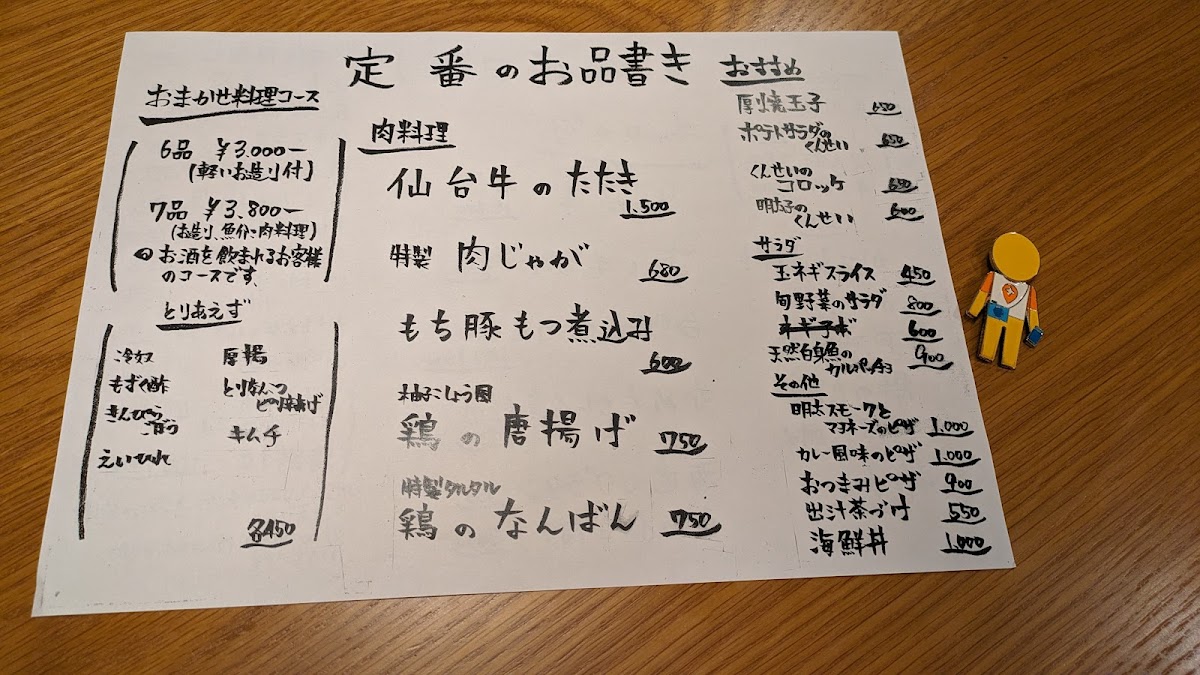 定番のお品書き
おまかせ料理コース
6品 ¥3.000ー
(軽いお造り付)
7品 ¥3.800ー
(お造り、魚介・肉料理)
お酒を飲まれるお客様
のコースです。
とりあえず
冷奴
もずく酢
きんぴら
ごぼう
えいひれ
厚揚
とりなんこつ
ピリ辛揚げ
キムチ
各450
肉料理
仙台牛のたたき
1.500
特製 肉じゃが 680
もち豚もつ煮込み
600
柚子こしょう風
鶏の唐揚げ 750
特製タルタル
鶏のなんばん 750
おすすめ
厚焼玉子 650
ポテトサラダの
くんせい 650
くんせいの
コロッケ 650
明太子の
くんせい 600
サラダ
玉ネギスライス 450
旬野菜のサラダ 800
600
天然白身魚の
カルパッチョ 900
その他
明太スモークと
マヨネーズのピザ 1.000
カレー風味のピザ 1.000
おつまみピザ 900
出汁茶づけ 550
海鮮丼 1.000